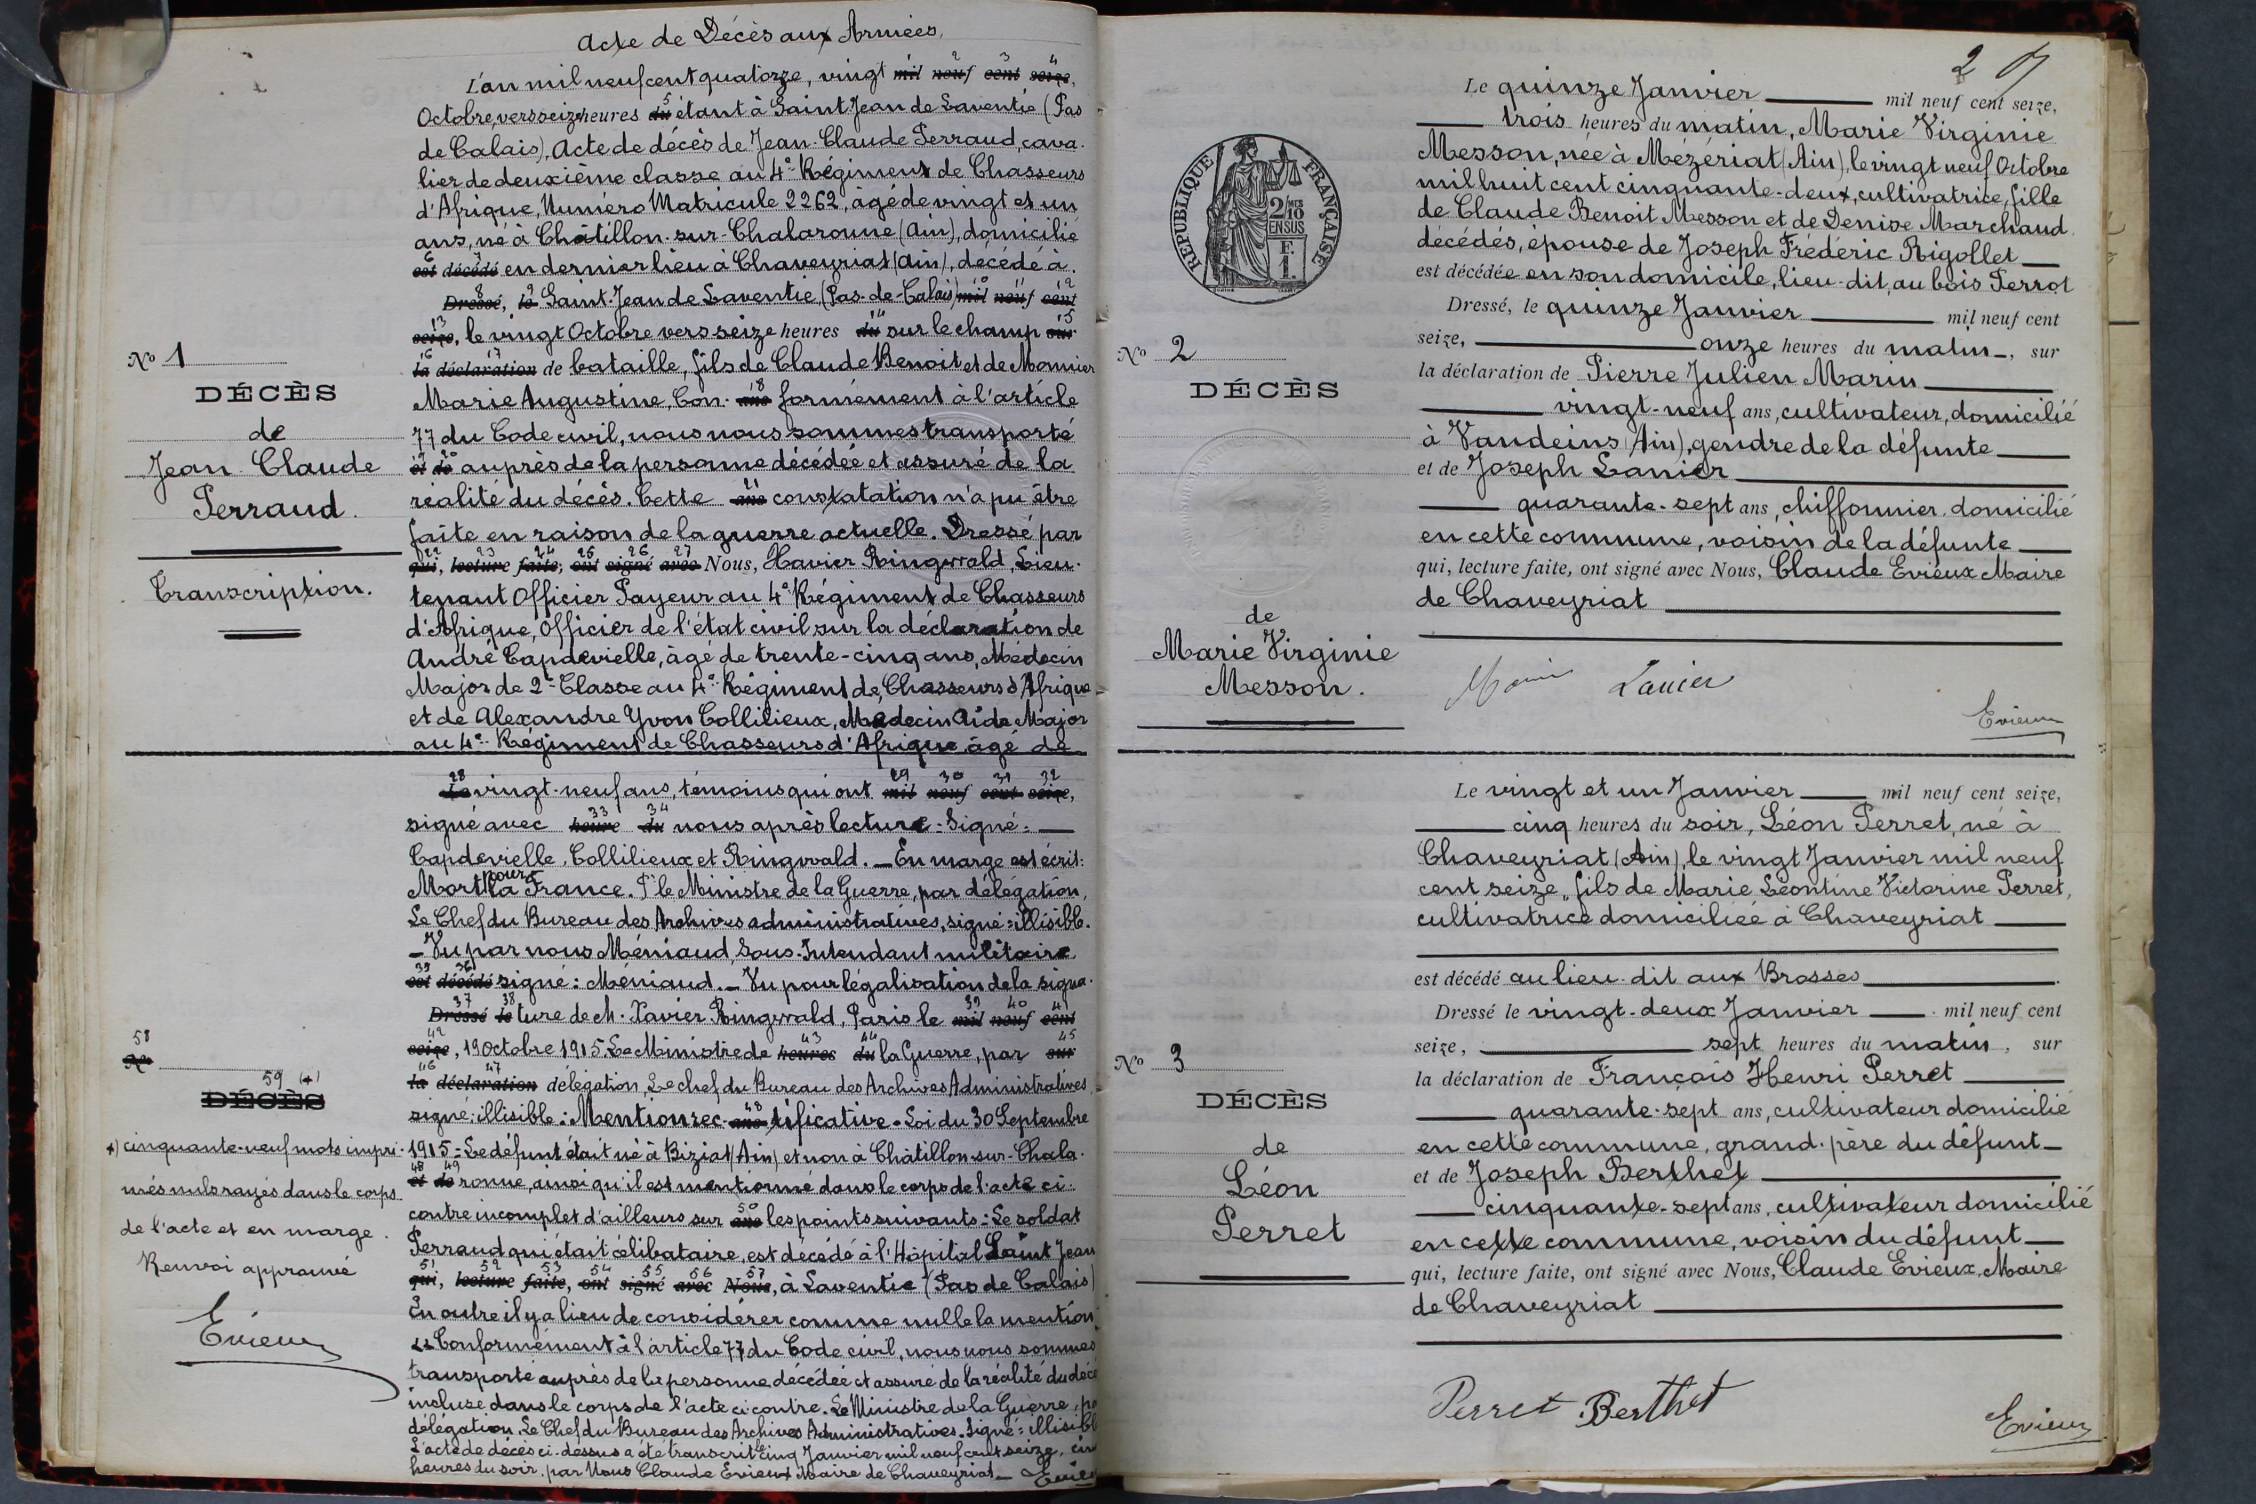 Acte de Décès aux Armées,
L'an mil neuf cent quatorze, vingt mil neuf cent seize,
Octobre, vers seize heures du étant à Saint Jean de Laventie (Pas
de Calais), Acte de décès de Jean-Claude Perraud, cava-
lier de deuxième classe au 4e Régiment de Chasseurs
d'Afrique, Numéro Matricule 2262, âgé de vingt et un
ans, né à Châtillon-sur-Chalaronne (Ain), domicilié
est décédé en dernier lieu à Chaveyriat (Ain), décédé à
Dressé, le Saint-Jean de Laventie (Pas-de-Calais) mil neuf cent
seize, le vingt Octobre vers seize heures du sur le champ sur
la déclaration de bataille, fils de Claude Benoit et de Monnier
Marie Augustine, Con- ans formément à l'article
77 du Code civil, nous nous sommes transporté
et de auprès de la personne décédée et assuré de la
réalité du décès. Cette ans constatation n'a pu être
faite en raison de la guerre actuelle. Dressé par
qui, lecture faite, ont signé avec Nous, Xavier Ringwald, Lieu-
tenant Officier Payeur au 4e Régiment de Chasseurs
d'Afrique, Officier de l'état civil sur la déclaration de
André Capdevielle, âgé de trente-cinq ans, Médecin
Major de 2e Classe au 4e Régiment de Chasseurs d'Afrique
et de Alexandre Yvon Collilieux, Médecin Aide Major
au 4e Régiment de Chasseurs d'Afrique, âgé de
Le vingt-neuf ans, témoins qui ont mil neuf cent seize,
signé avec heure du nous après lecture - Signé :
Capdevielle, Collilieux et Ringwald. — En marge est écrit :
Mort pour la France. Pr le Ministre de la Guerre, par délégation,
Le Chef du Bureau des Archives administratives, signé : illisible.
— Vu par nous Méniaud, Sous-Intendant militaire
est décédé signé : Méniaud. — Vu pour légalisation de la signa-
Dressé le ture de M. Xavier Ringwald, Paris le mil neuf cent
seize, 19 octobre 1915. Le Ministre de heures du la Guerre, par sur
la déclaration délégation, Le chef du Bureau des Archives Administratives
signé : illisible : Mention rec- ans tificative - Loi du 30 Septembre
1915 : Le défunt était né à Biziat (Ain) et non à Châtillon-sur-Chala-
et de ronne, ainsi qu'il est mentionné dans le corps de l'acte ci-
contre incomplet d'ailleurs sur ans les points suivants : Le soldat
Perraud qui était célibataire, est décédé à l'Hôpital Saint Jean
qui, lecture faite, ont signé avec Nous, à Laventie (Pas de Calais)
En outre il y a lieu de considérer comme nulle la mention
"Conformément à l'article 77 du Code civil, nous nous sommes
transporté auprès de la personne décédée et assuré de la réalité du décè
incluse dans le corps de l'acte ci-contre. Le Ministre de la Guerre, pa
délégation, Le Chef du Bureau des Archives Administratives. Signé : illisibl
L'acte de décès ci-dessus a été transcrit le cinq Janvier mil neuf cent seize, cin
heures du soir, par Nous Claude Evieux Maire de Chaveyriat —
No 1
DÉCÈS
de
Jean-Claude
Perraud.
Transcription.
58
No
59 (+)
DÉCÈS
+) cinquante-neuf mots impri-
més nuls rayés dans le corps
de l'acte et en marge.
Renvoi approuvé
Evieux
2
RÉPUBLIQUE FRANÇAISE
2/10
EN SUS
F.
1.
No 2
DÉCÈS
de
Marie Virginie
Messon.
Le quinze Janvier mil neuf cent seize,
trois heures du matin, Marie Virginie
Messon, née à Mézériat (Ain), le vingt neuf Octobre
mil huit cent cinquante-deux, cultivatrice, fille
de Claude Benoit Messon et de Denise Marchaud
décédés, épouse de Joseph Frédéric Rigollet
est décédée en son domicile, lieu-dit, au bois Perrot
Dressé, le quinze Janvier mil neuf cent
seize, onze heures du matin, sur
la déclaration de Pierre Julien Marin
vingt-neuf ans, cultivateur, domicilié
à Vandeins (Ain), gendre de la défunte
et de Joseph Lanier
quarante-sept ans, chiffonnier, domicilié
en cette commune, voisin de la défunte
qui, lecture faite, ont signé avec Nous, Claude Evieux Maire
de Chaveyriat
Marin Lanier
Evieux
No 3
DÉCÈS
de
Léon
Perret
Le vingt et un Janvier mil neuf cent seize,
cinq heures du soir, Léon Perret, né à
Chaveyriat (Ain), le vingt Janvier mil neuf
cent seize, fils de Marie Léontine Victorine Perret,
cultivatrice domiciliée à Chaveyriat
est décédé au lieu-dit aux Brosses
Dressé le vingt-deux Janvier mil neuf cent
seize, sept heures du matin, sur
la déclaration de François Henri Perret
quarante-sept ans, cultivateur domicilié
en cette commune, grand-père du défunt
et de Joseph Berthet
cinquante-sept ans, cultivateur domicilié
en cette commune, voisin du défunt
qui, lecture faite, ont signé avec Nous, Claude Evieux, Maire
de Chaveyriat
Perret Berthet
Evieux